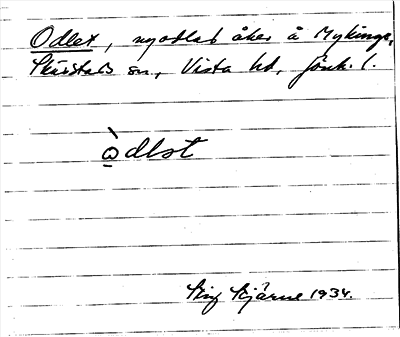 Odlet, nyodlad åker å Mykinge,
Skärstads sn, Vista hd, Jönk. l.
òdlət
Stig Bjärne 1934.